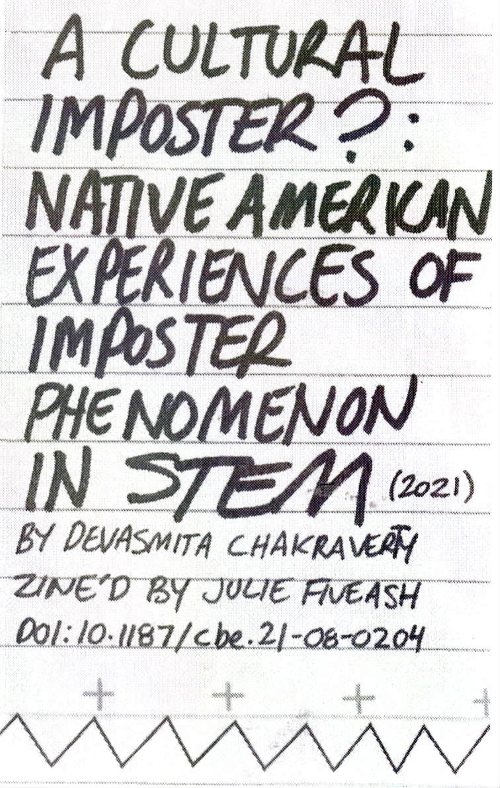 A CULTURAL
IMPOSTER?:
NATIVE AMERICAN
EXPERIENCES OF
IMPOSTER
PHENOMENON
IN STEM (2021)
BY DEVASMITA CHAKRAVERTY
ZINE'D BY JULIE FIVEASH
DOI:10.1187/cbe.21-08-0204